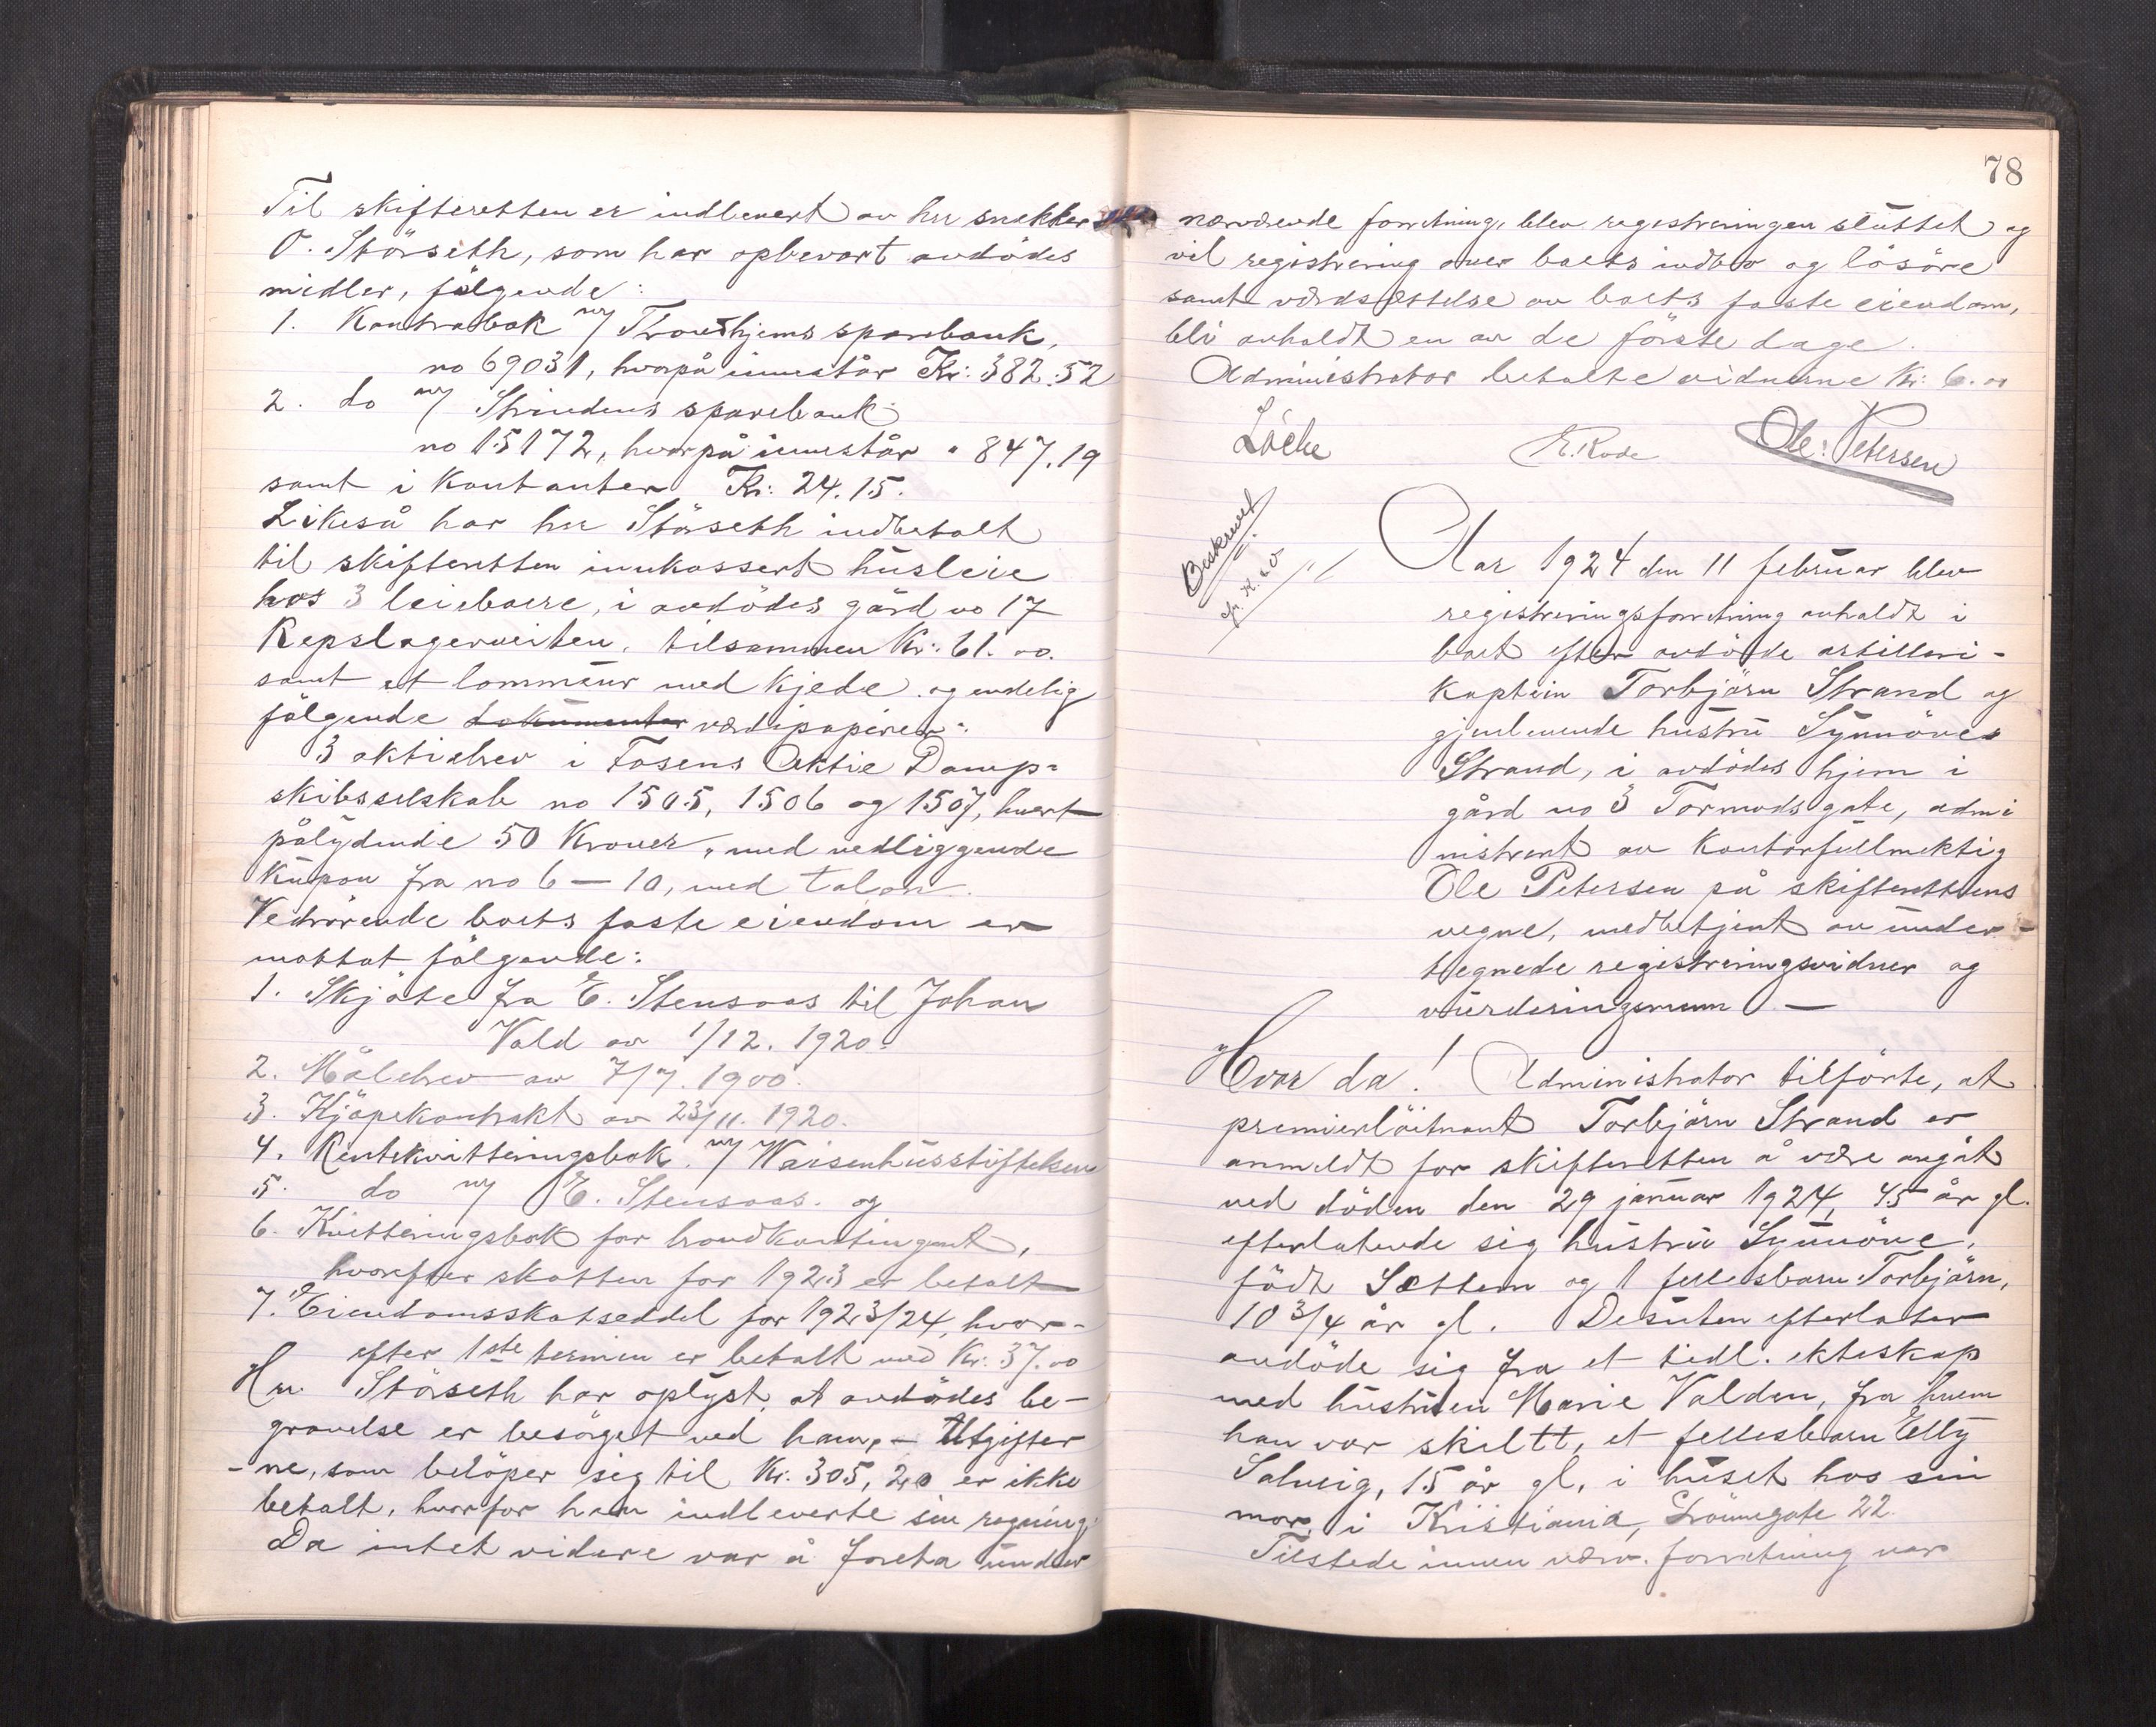 Til skifteretten er indlevert av hr snekker
O. Störseth, som har opbevart avdödes
midler, fölgende:
1. Kontrabok m/ Trondhjems sparebank,
no 69031, hvorpå innestår Kr: 382.52
2. do m/ Strindens sparebank
no 15172, hvorpå innestår " 847.19
samt i kontanter Kr: 24.15.
Likeså har hr Störseth indbetalt
til skifteretten innkassert husleie
hos 3 leieboere, i avdödes gård no 17
Repslagerveiten, tilsammen Kr: 61.00.
samt et lommeur med kjede og endelig
fölgende dokumenter verdipapirer:
3 aktiebrev i Fosens Aktie Damp=
skibsselskab no 1505, 1506 og 1507, hvert
pålydende 50 Kroner, med vedliggende
Kupon fra no 6 — 10, med talon.
Vedrörende boets faste eiendom er
mottat fölgende:
1. Skjöte fra E. Stensaas til Johan
Vold av 1/12. 1920.
2. Målebrev av 7/7. 1900.
3. Kjöpekontrakt av 23/11. 1920.
4. Rentekvitteringsbok m/ Waisenhusstiftelsen
5. do m/ E. Stensaas. og
6. Kvitteringsbok for brandkontingent,
hvorefter skatten for 1923 er betalt
7. Eiendomsskatseddel for 1923/24, hvor-
efter 1ste termin er betalt med Kr. 37.00
Hr. Störseth har oplyst, at avdödes be-
gravelse er besörget ved ham, — Utgifter
-ne, som belöper sig til Kr. 305,20 er ikke
betalt, hvorfor han indleverte sin regning.
Da intet videre var å foreta under
78
nærværende forretning, blev registreringen sluttet og
vil registrering over boets indbo og lösöre
samt verdsettelse av boets faste eiendom,
bli avholdt en av de förste dage.
Administrator betalte vidnerne Kr: 6.00
Löche K. Rode Ole Petersen
Beskrevet
Aar 1924 den 11 februar blev
registreringsforretning avholdt i
boet efter avdöde artilleri-
kaptein Torbjörn Strand og
gjenlevende hustru Synnöve
Strand, i avdödes hjem i
gård no 3 Tormods gate, admi
nistrert av kontorfullmektig
Ole Petersen på skifterettens
vegne, medbetjent av under-
tegnede registreringsvidner og
vurderingsmenn —
Hvor da! Administrator tilförte, at
premierlöitnant Torbjörn Strand er
anmeldt for skifteretten å være avgåt
ved döden den 29 januar 1924, 45 år gl.
efterlatende sig hustru Synnöve,
födt Sættem og 1 fellesbarn Torbjörn,
10 3/4 år gl. Desuten efterlater
avdöde sig fra et tidl. ekteskap
med hustruen Marie Valden, fra hvem
han var skiltt, et fellesbarn Elly
Solveig, 15 år gl, i huset hos sin
mor, i Kristiania, gate 22.
Tilstede innen nærv. forretning var